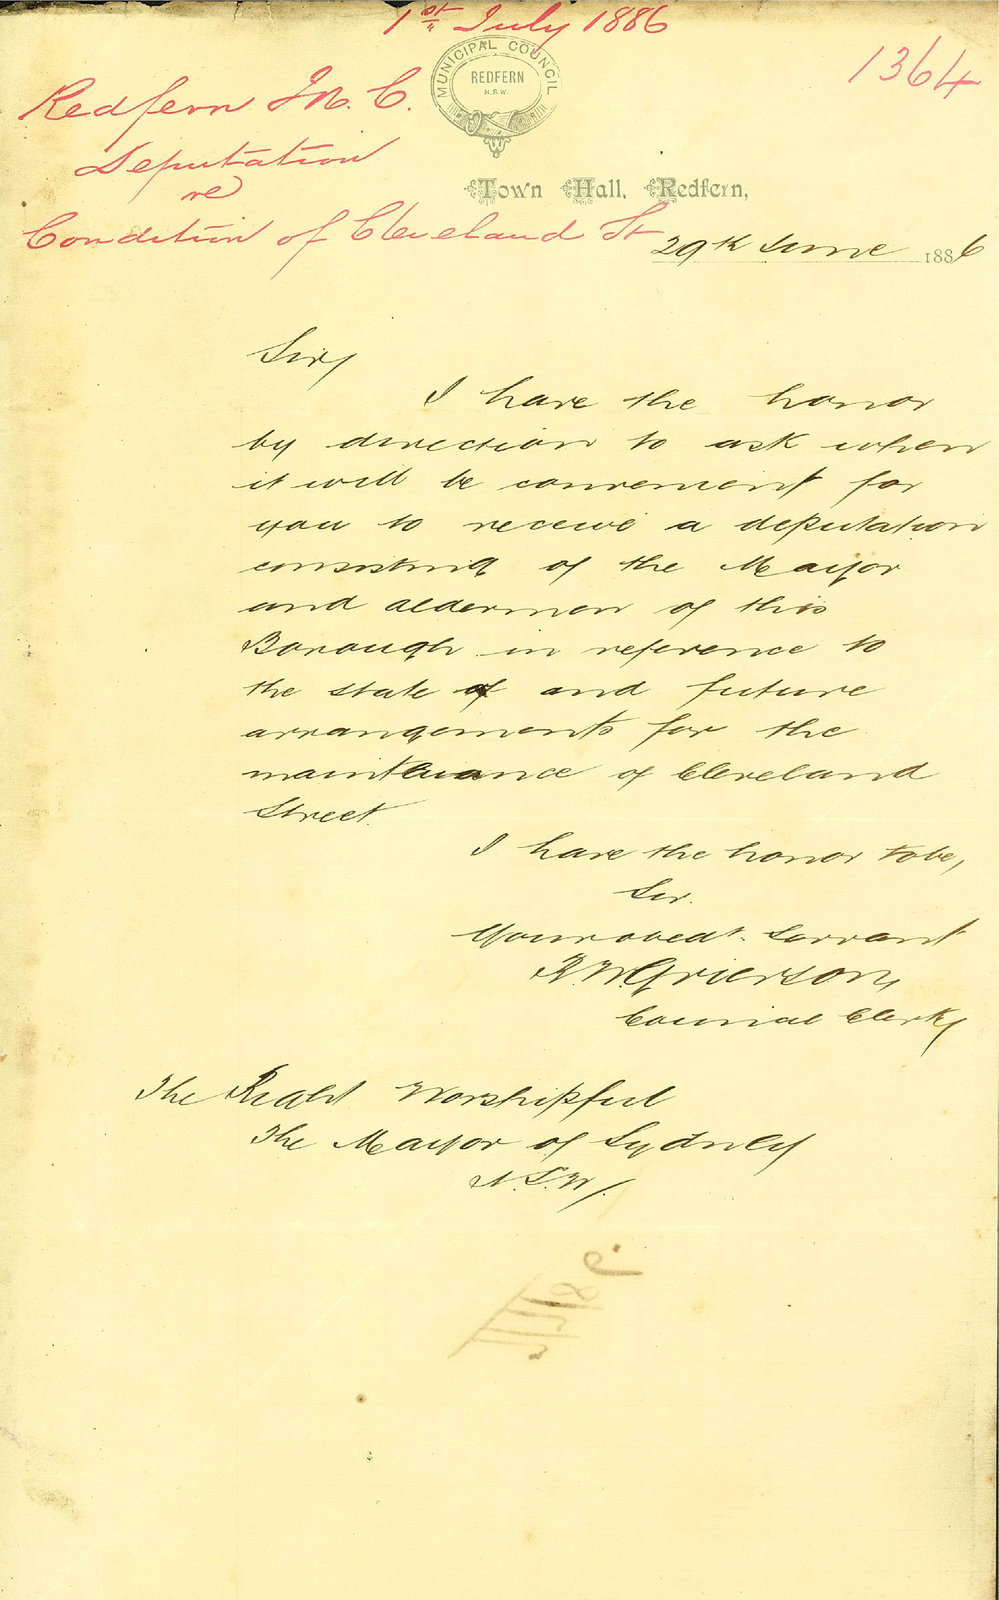 1st July 1886
1364
MUNICIPAL COUNCIL
REDFERN
N.S.W.
Redfern M. C.
Deputation
re
Condition of Cleveland St
Town Hall, Redfern,
29th June 1886
Sir,
I have the honor
by direction to ask when
it will be convenient for
you to receive a deputation
consisting of the Mayor
and aldermen of this
Borough in reference to
the state of and future
arrangements for the
maintenance of Cleveland
Street.
I have the honor to be,
Sir.
Your obedt. Servant
Grierson,
Council Clerk,
The Right Worshipful
The Mayor of Sydney
N.S.W.